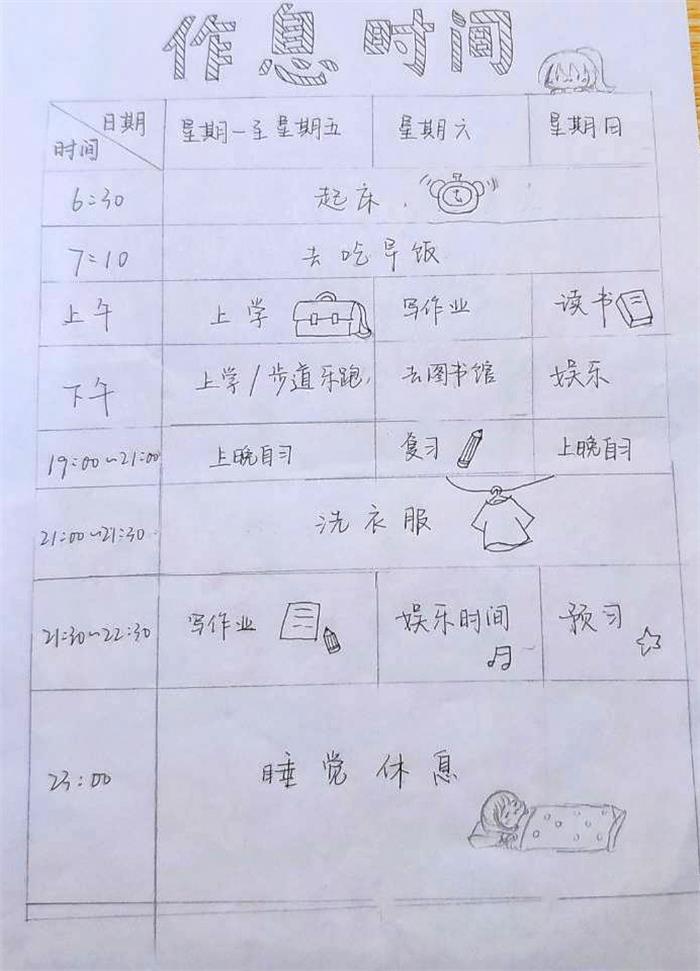 作息时间
日期
时间
星期一至星期五 星期六 星期日
6:30 起床.
7:10 去吃早饭
上午 上学 写作业 读书
下午 上学/步道乐跑, 去图书馆 娱乐
19:00~21:00 上晚自习 复习 上晚自习
21:00~21:30 洗衣服
21:30~22:30 写作业 娱乐时间 预习
23:00 睡觉休息